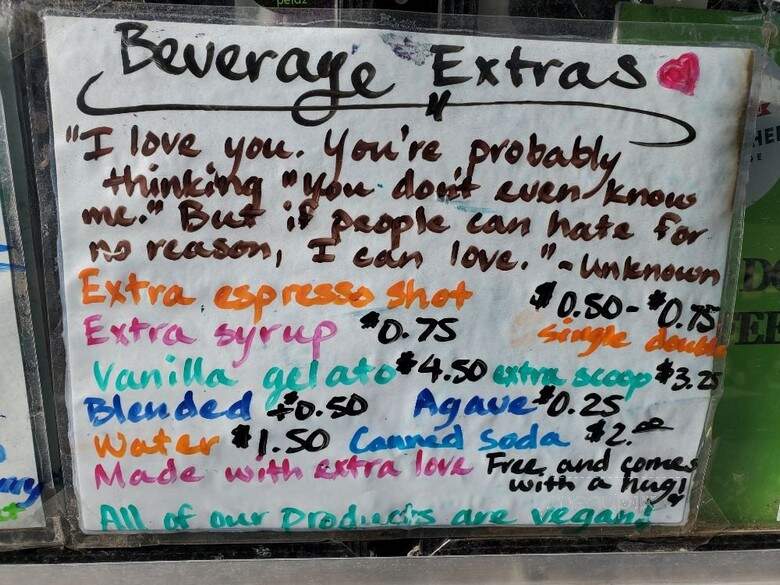 Beverage Extras
"I love you. You're probably
thinking "you don't even know
me." But if people can hate for
no reason, I can love." - Unknown
Extra espresso shot $0.50-$0.75
single double
Extra syrup $0.75
Vanilla gelato $4.50 extra scoop $3.25
Blended $0.50 Agave $0.25
Water $1.50 Canned Soda $2.00
Made with extra love Free and comes
with a hug!
All of our Products are vegan!